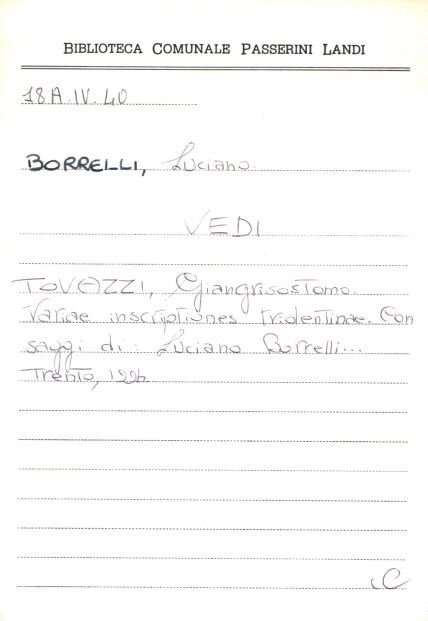 BIBLIOTECA COMUNALE PASSERINI LANDI
18A.IV.40
BORRELLI, Luciano.
VEDI
TOVAZZI, Giangrisostomo.
Variae inscriptiones tridentinae. Con
saggi di: Luciano Borrelli...
Trento,
C